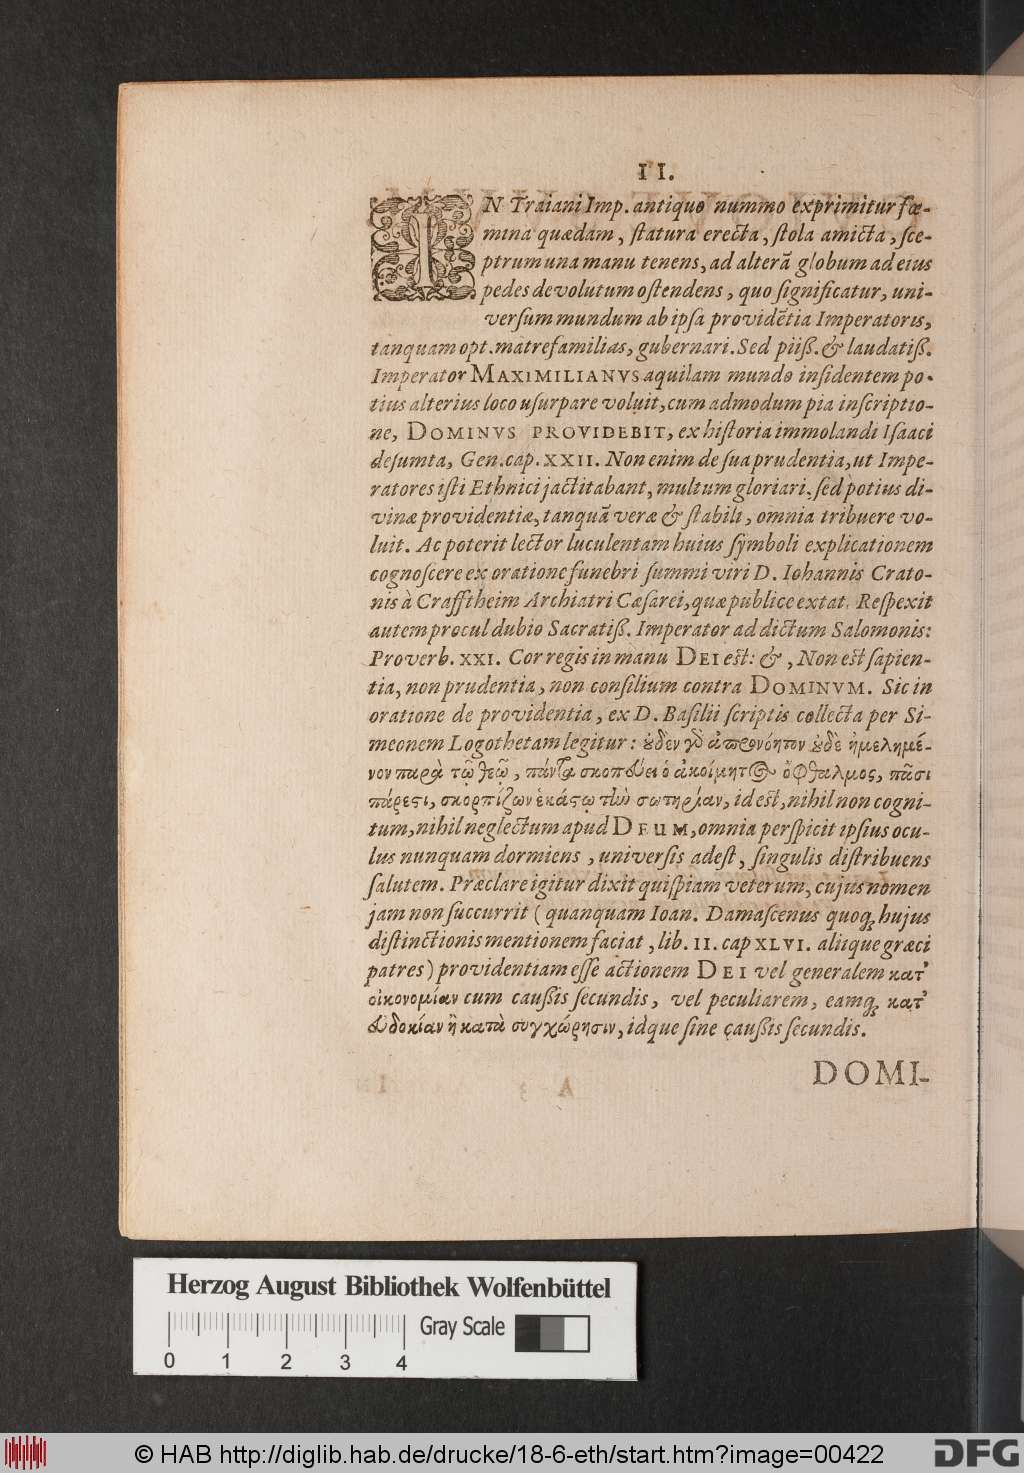 II.
IN Traiani Imp. antiquo nummo exprimitur fœ-
mina quædam, ſtatura erecta, ſtola amicta, ſce-
ptrum una manu tenens, ad alterã globum ad eius
pedes devolutum oſtendens, quo ſignificatur, uni-
verſum mundum ab ipſa providẽtia Imperatoris,
tanquam opt. matrefamilias, gubernari. Sed piiß. & laudatiß.
Imperator MAXIMILIANVS aquilam mundo inſidentem po-
tius alterius loco uſurpare voluit, cum admodum pia inſcriptio-
ne, DOMINVS PROVIDEBIT, ex hiſtoria immolandi Iſaaci
deſumta, Gen. cap. XXII. Non enim de ſua prudentia, ut Impe-
ratores iſti Ethnici jactitabant, multum gloriari, ſed potius di-
vinæ providentiæ, tanquã veræ & ſtabili, omnia tribuere vo-
luit. Ac poterit lector luculentam huius ſymboli explicationem
cognoſcere ex oratione funebri ſummi viri D. Iohannis Crato-
nis à Crafftheim Archiatri Cæſarei, quæ publice extat. Reſpexit
autem procul dubio Sacratiß. Imperator ad dictum Salomonis:
Proverb. XXI. Cor regis in manu DEI est: & , Non est ſapien-
tia, non prudentia, non conſilium contra DOMINVM. Sic in
oratione de providentia, ex D. Baſilii ſcriptis collecta per Si-
meonem Logothetam legitur: ὐδὲν γὸ ἀπρονόητον ὐδὲ ἠμελημέ-
νον παρὰ τῷ θεῷ, πάντα σκοπεύει ὁ ἀκοίμητος ὀφθαλμος, πᾶσι
πάρεϛι, σκορπίζων ἑκάϛῳ τὴν σωτηρίαν, id est, nihil non cogni-
tum, nihil neglectum apud DEUM, omnia perſpicit ipſius ocu-
lus nunquam dormiens, univerſis adeſt, ſingulis diſtribuens
ſalutem. Præclare igitur dixit quiſpiam veterum, cujus nomen
jam non ſuccurrit (quanquam Ioan. Damaſcenus quoq; hujus
diſtinctionis mentionem faciat, lib. II. cap XLVI. aliique græci
patres) providentiam eſſe actionem DEI vel generalem κατ᾽
οἰκονομίαν cum caußis ſecundis, vel peculiarem, eamq; κατ᾽
εὐδοκίαν ἢ κατὰ συγχώρησιν, idque ſine caußis ſecundis.
DOMI-
Herzog August Bibliothek Wolfenbüttel
Gray Scale
0 1 2 3 4
© HAB http://diglib.hab.de/drucke/18-6-eth/start.htm?image=00422
DFG